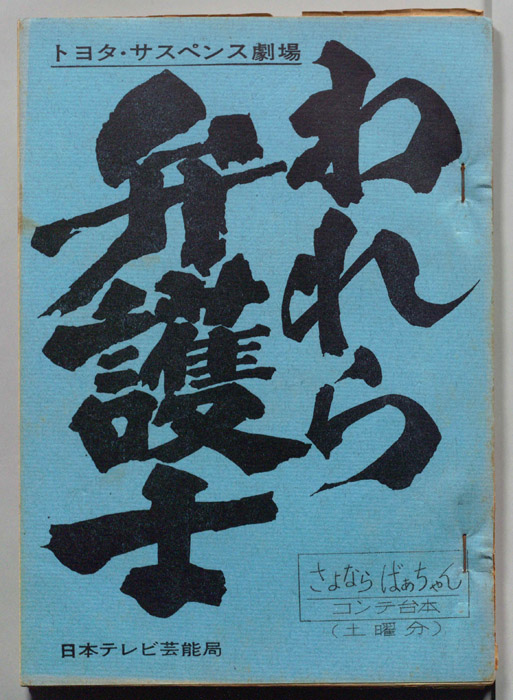 トヨタ・サスペンス劇場
われら
弁護士
さよならばぁちゃん
コンテ台本
(土曜分)
日本テレビ芸能局